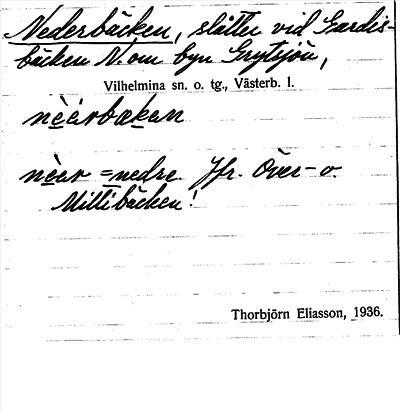 Nederbäcken, slåtter vid Gardis-
bäcken N. om byn Grytsjön,
Vilhelmina sn. o. tg., Västerb. l.
nèarbækan
nèar = nedre Jfr. Över- o.
Millibäcken!
Thorbjörn Eliasson, 1936.